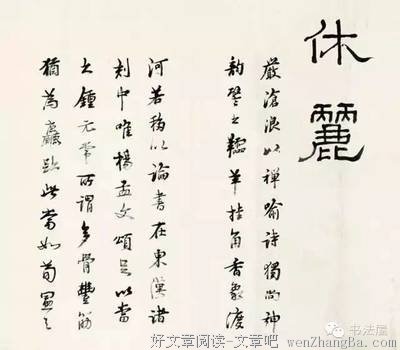 休麗
嚴滄浪以禅喻詩獨尚神
韵譬之羚羊挂角香象渡
河若移以論書在東漢諸
刻中唯楊孟文頌足以當
之鍾元常所謂多骨豐筋
猶為此當如荀
书法屋
好文章阅读-文章吧
wenZhangBa.com